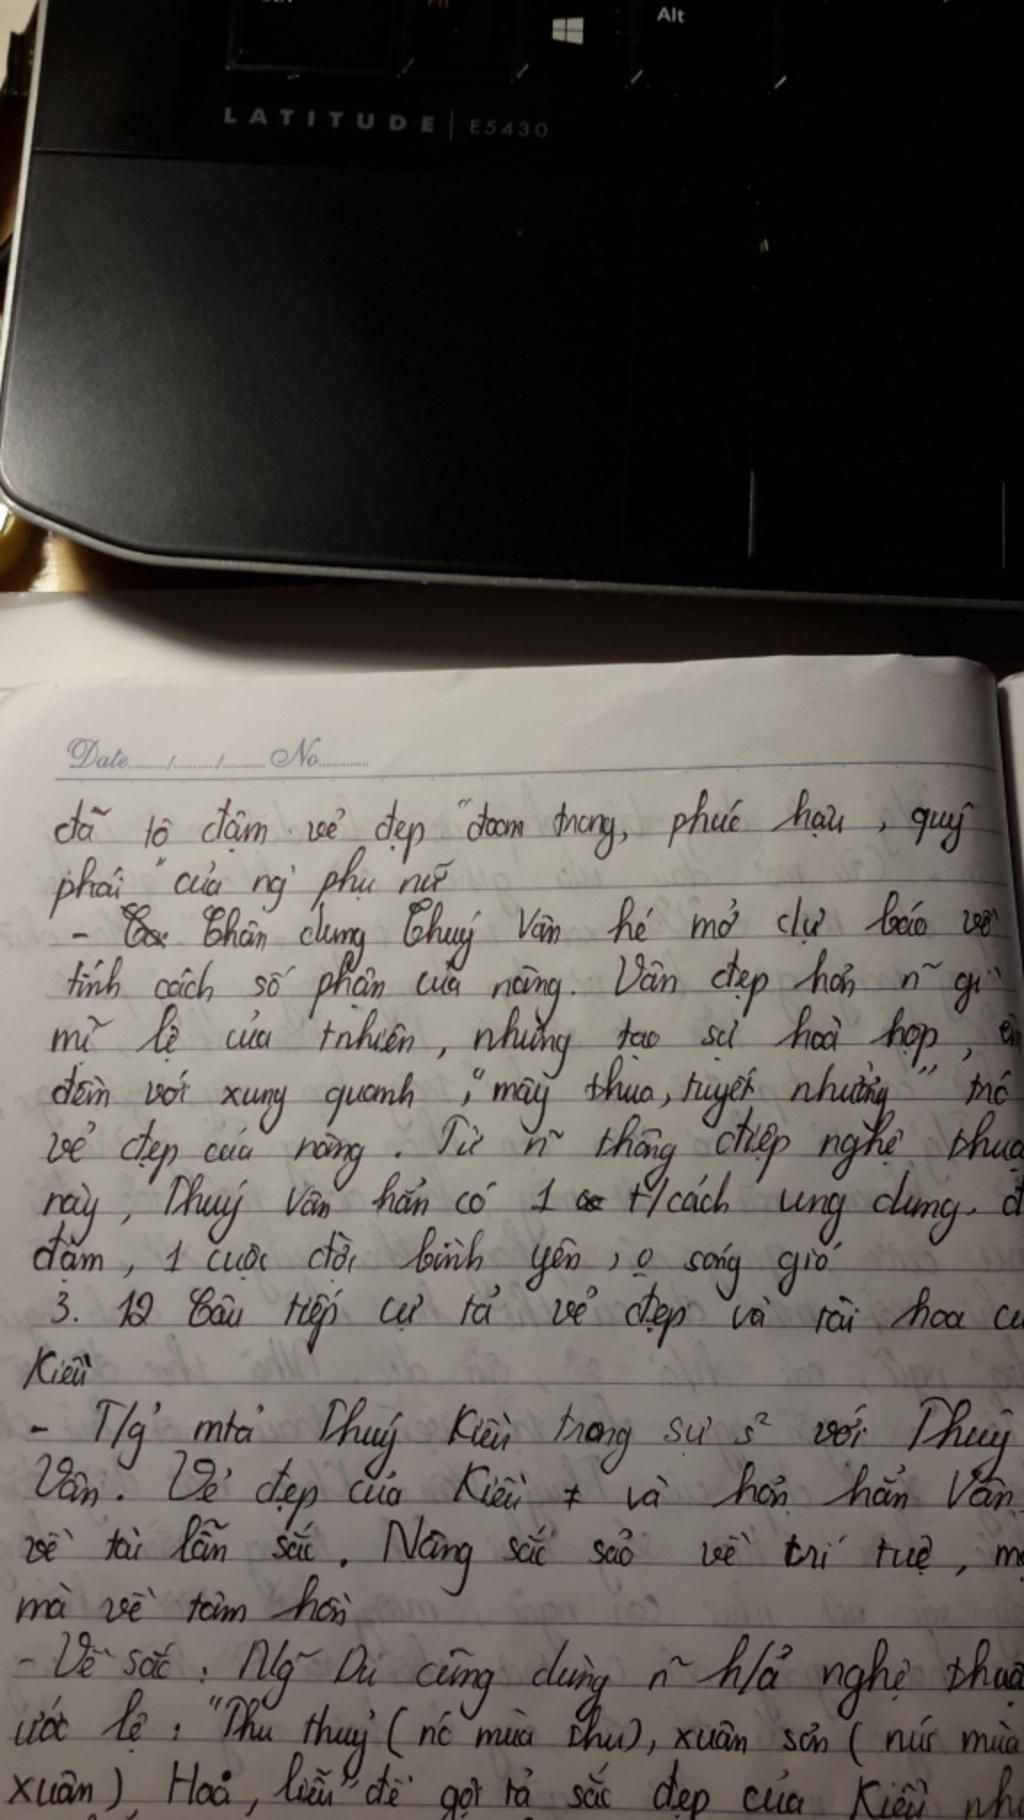 Alt
LATITUDE | E5430
Date / / No
đã tô đậm vẻ đẹp "đoan trang, phúc hậu, quý
phái" của ng' phụ nữ
- Chân dung Thuý Vân hé mở dự báo về
tính cách số phận của nàng. Vân đẹp hơn n~ gì
mĩ lệ của tnhiên, nhưng tạo sự hoà hợp, êm
đềm với xung quanh, "mây thua, tuyết nhường"
vẻ đẹp của nàng. Từ n~ thông điệp nghệ
này, Thuý Vân hẳn có 1 t/cách ung dung,
đàm, 1 cuộc đời bình yên, o sóng gió
3. 12 câu tiếp cự tả vẻ đẹp và tài hoa
Kiều
- T/g' mtả Thuý Kiều trong sự s² với Thuý
Vân. Vẻ đẹp của Kiều ≠ và hơn hẳn Vân
về tài lẫn sắc. Nàng sắc sảo về trí tuệ,
mà về tâm hồn
- Về sắc: Ng~ Du cũng dùng n~ h/ả nghệ
ước lệ: "Thu thuỷ (nc mùa thu), xuân sơn (núi mùa
xuân) Hoa, liễu" để gợi tả sắc đẹp của Kiều